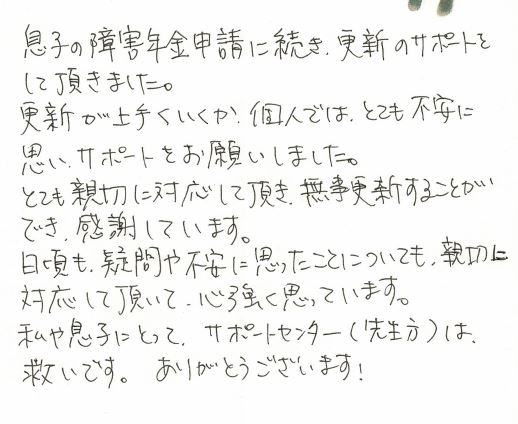 息子の障害年金申請に続き、更新のサポートを
して頂きました。
更新が上手くいくか、個人では、とても不安に
思い、サポートをお願いしました。
とても親切に対応して頂き、無事更新することが
でき、感謝しています。
日頃も、疑問や不安に思ったことについても、親切に
対応して頂いて、心強く思っています。
私や息子にとって、サポートセンター（先生方）は、
救いです。ありがとうございます！